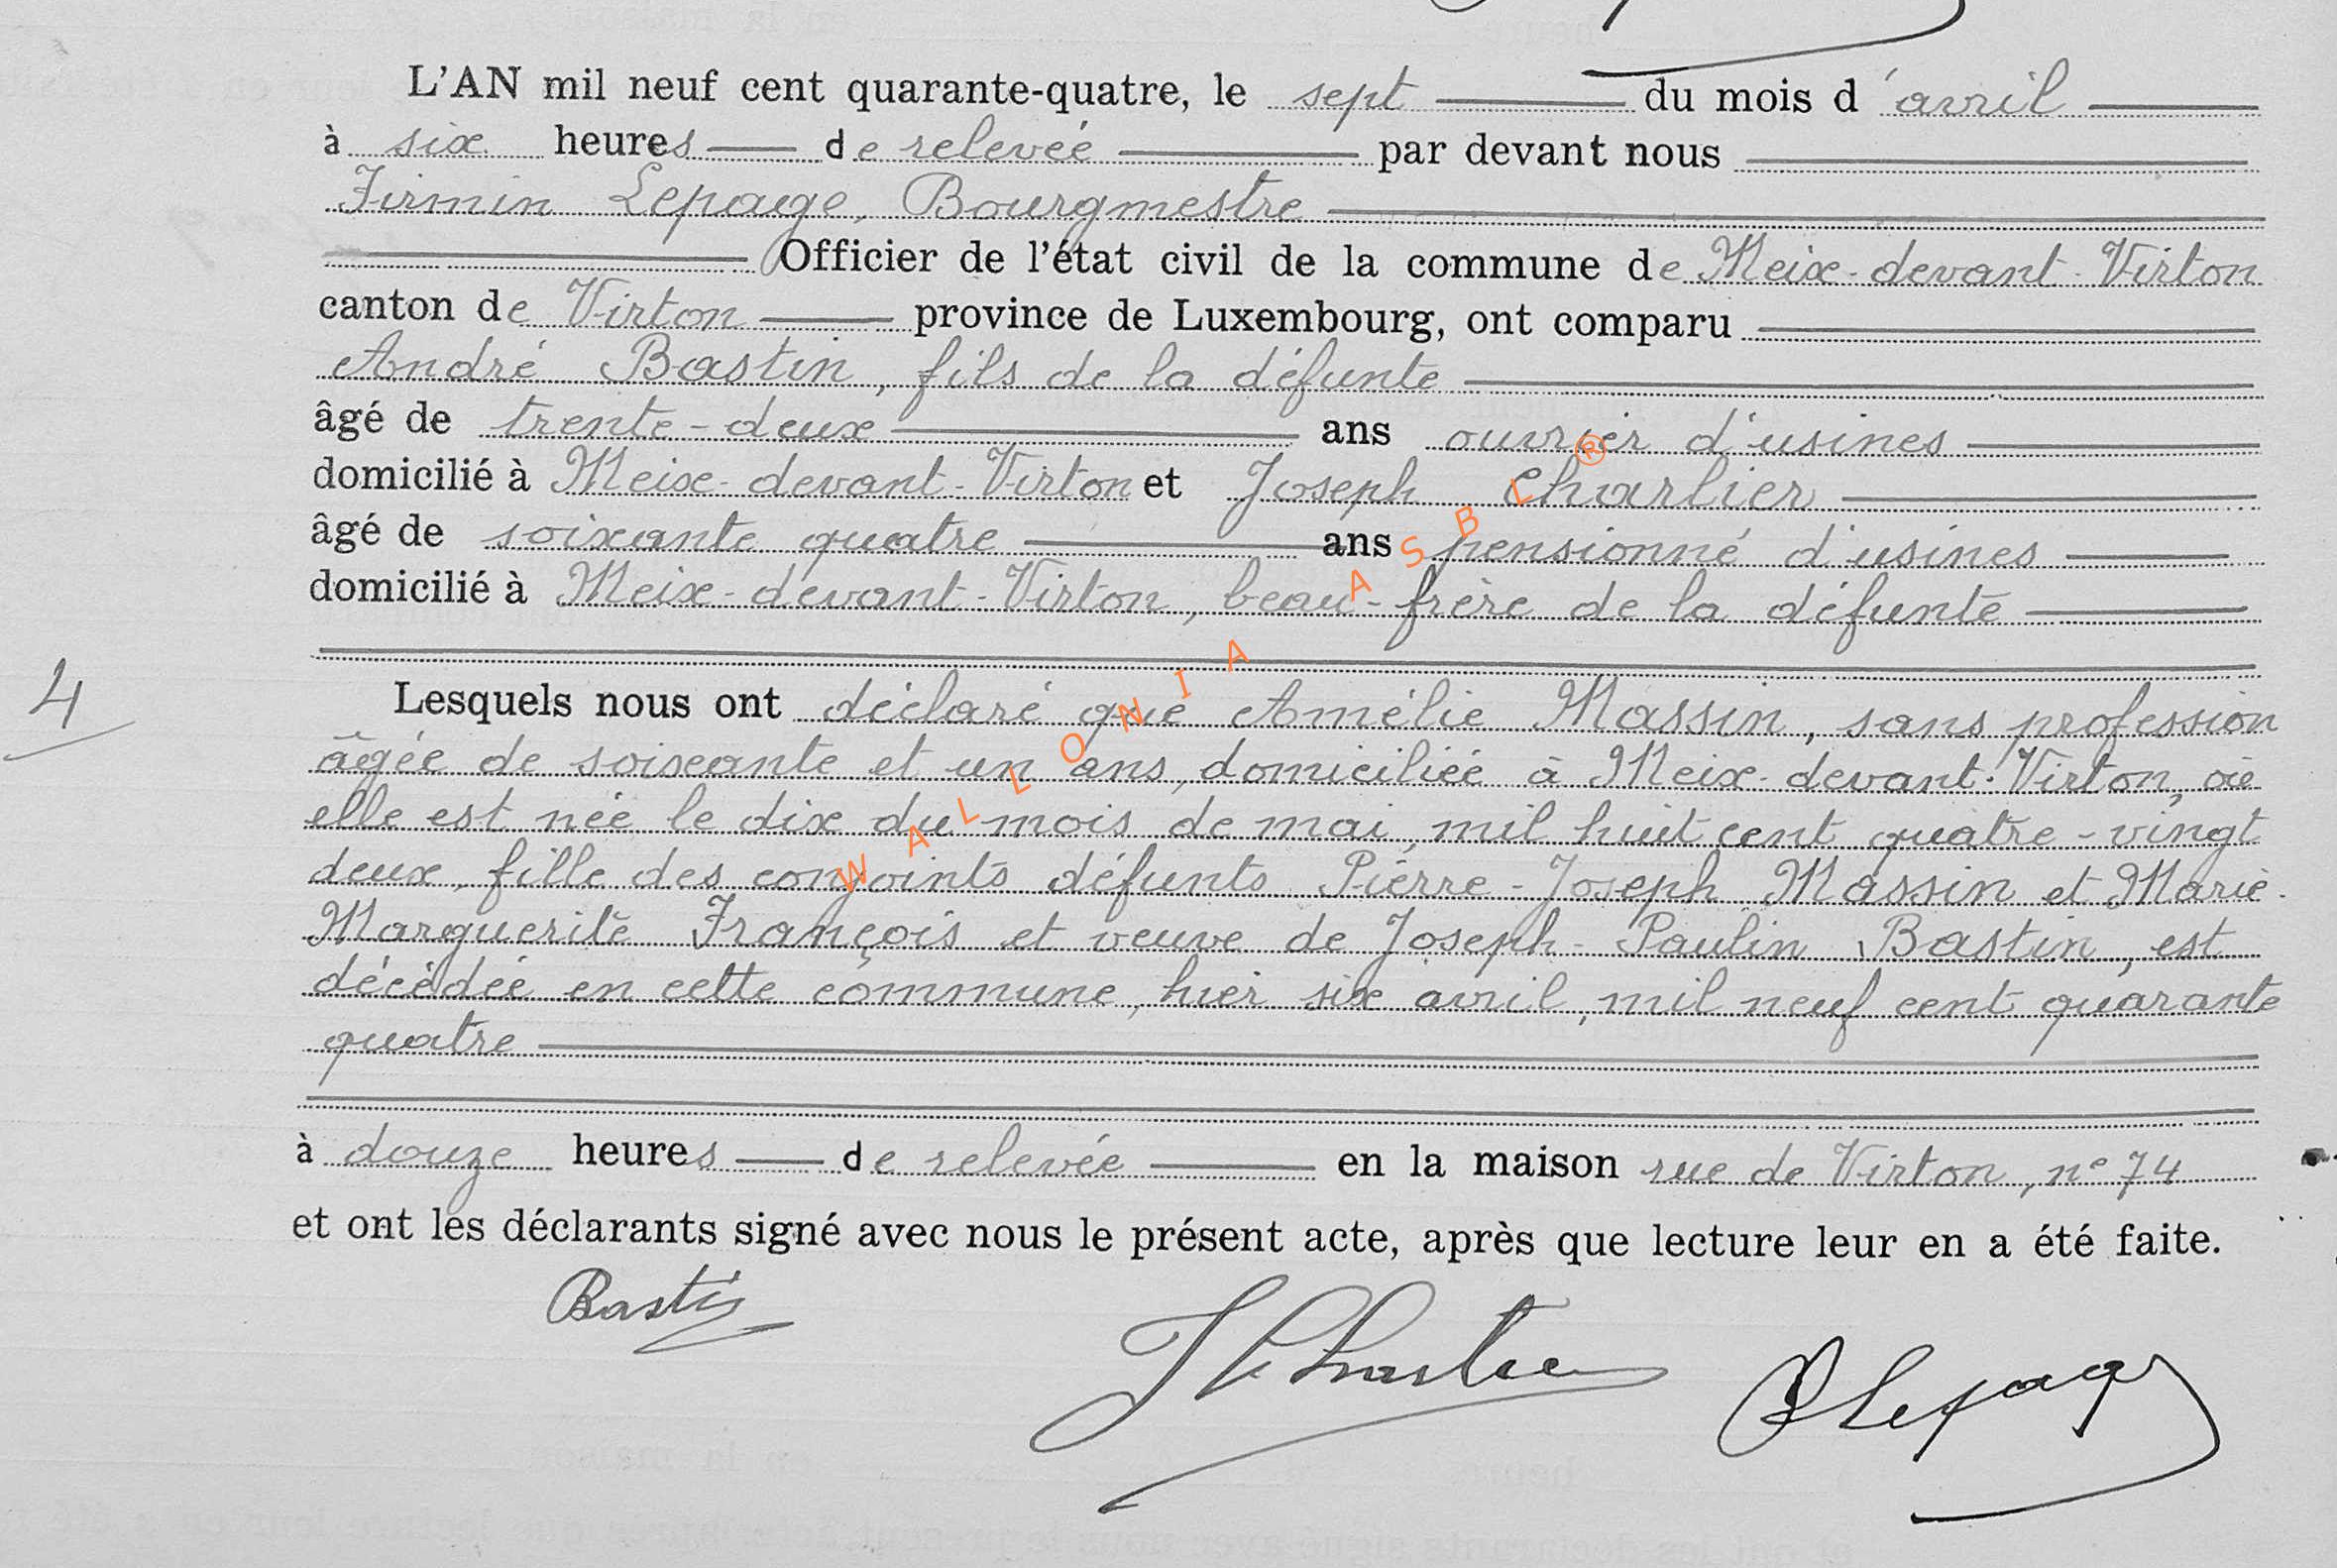 L'AN mil neuf cent quarante-quatre, le sept du mois d'avril
à six heures de relevée par devant nous
Firmin Lepage, Bourgmestre
Officier de l'état civil de la commune de Meix-devant-Virton
canton de Virton province de Luxembourg, ont comparu
André Bastin, fils de la défunte
âgé de trente-deux ans ouvrier d'usines
domicilié à Meix-devant-Virton et Joseph Charlier
âgé de soixante quatre ans pensionné d'usines
domicilié à Meix-devant-Virton, beau-frère de la défunte
4
Lesquels nous ont déclaré que Amélie Massin, sans profession
âgée de soixante et un ans, domiciliée à Meix-devant-Virton, où
elle est née le dix du mois de mai, mil huit cent quatre-vingt
deux, fille des conjoints défunts Pierre-Joseph Massin et Marie-
Marguerite François et veuve de Joseph-Paulin Bastin, est
décédée en cette commune, hier six avril, mil neuf cent quarante
quatre
à douze heures de relevée en la maison rue de Virton, n° 74
et ont les déclarants signé avec nous le présent acte, après que lecture leur en a été faite.
Bastin
J Charlier
Lepage
WALLONIA ASBL ®